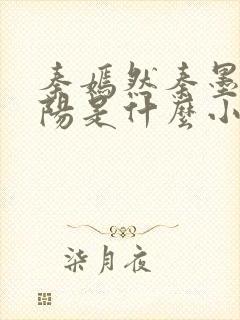 秦嫣然秦墨
陽是什麼小
柒月夜